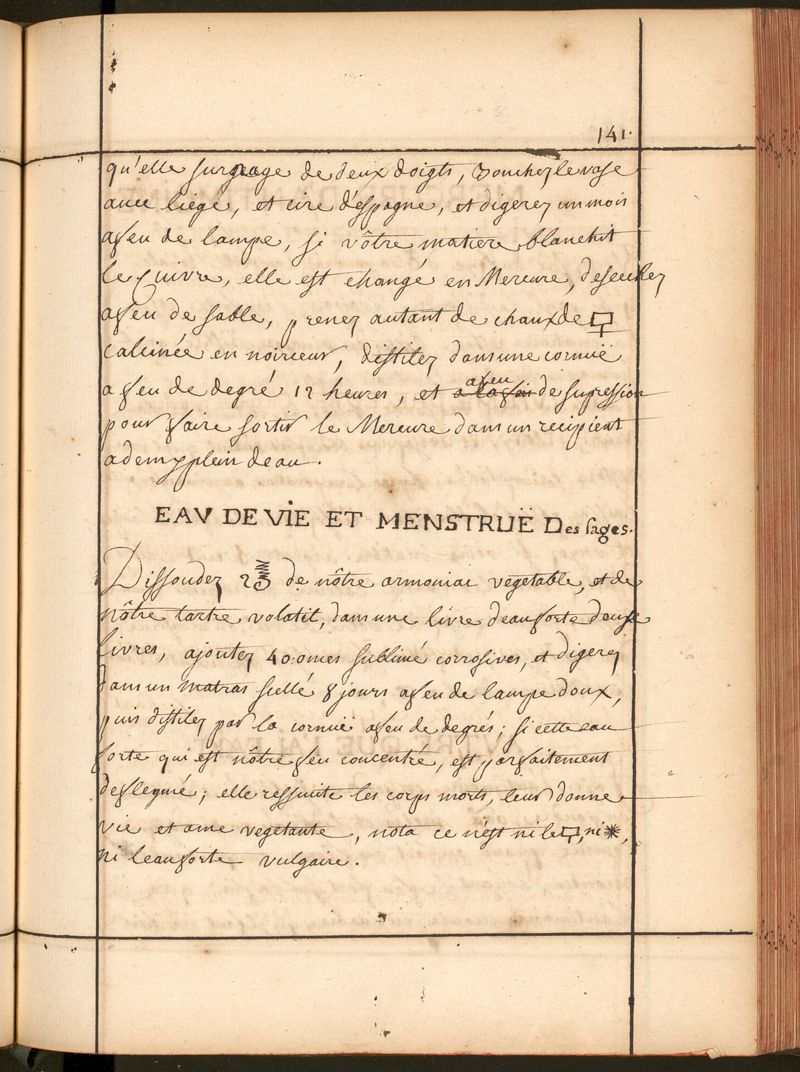 141.
qu'elle surnage de deux doigts, Bouchez le vase
avec liege, et cire d'espagne, et digerez un mois
a feu de lampe, si vôtre matiere blanchit
le Cuivre, elle est changé en Mercure, deseichez
a feu de sable, prenez autant de chaux de
Calcinée en noirceur, distilez dans une cornuë
a feu de degré 12 heures, et a feu de supression
pour faire sortir le Mercure dans un recipient
a demy plein deau.
EAV DE VIE ET MENSTRUË Des sages.
Dissoudez de nôtre armoniac vegetable, et de
nôtre tartre volatil, dans une livre deau forte douze
livres, ajoutez 4 onces sublimé corrosives, et digerez
dans un matras sçellé 8 jours a feu de lampe doux,
puis distilez par la cornuë a feu de degrés; si cette eau
forte qui est nôtre feu concentré, est parfaitement
deflegmé; elle ressuscite les corps morts, leur donne
vie et ame vegetante, nota ce n'est ni le , ni ✳,
ni leau forte vulgaire.